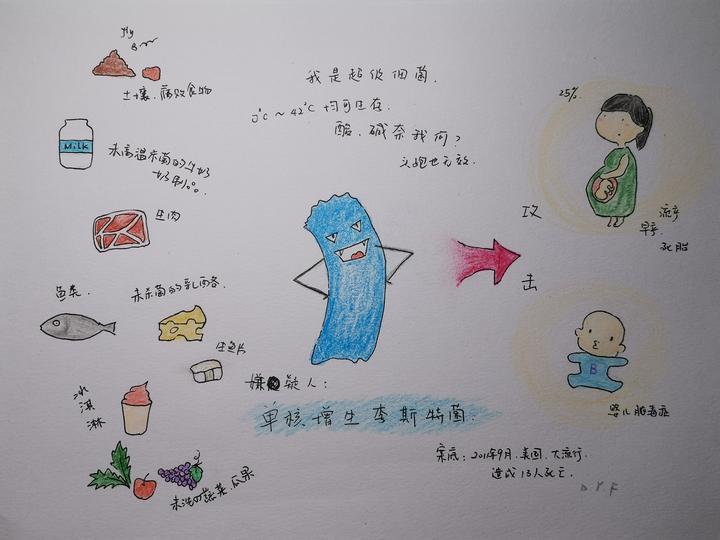 fly
土壤、腐败食物
Milk
未高温杀菌的牛奶
奶制品
生肉
鱼类.
未杀菌的乳酪
生鱼片
冰淇淋
未洗的蔬菜、瓜果
我是超级细菌.
0℃~42℃ 均可生存.
酸、碱奈我何?
头孢也无效.
嫌疑人:
单核增生李斯特菌.
案底:2011年9月.美国.大流行.
造成13人死亡.
攻
击
25%.
流产
早产.
死胎
B
婴儿脓毒症
D.Y.F